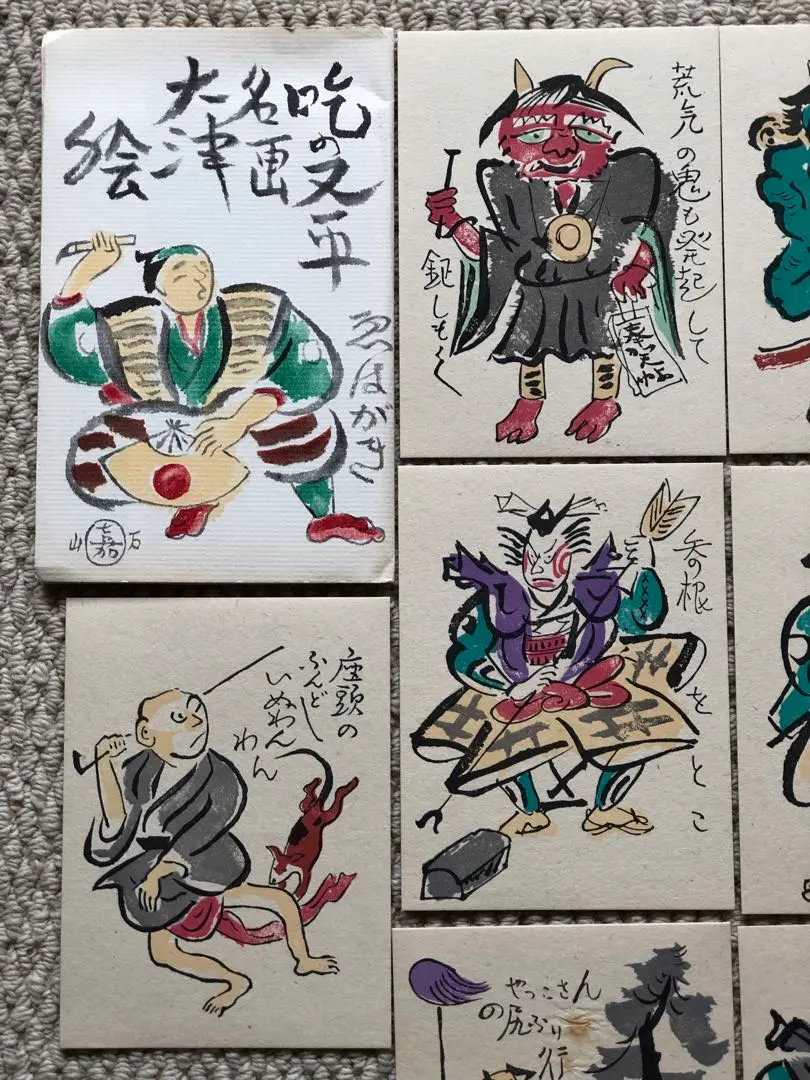 吃の又平
名画
大津
絵
ゑはがき
山
万
荒気の鬼も発起して
鉦しもく
奉加帳
座頭の
ふんどし
いぬわん
わん
矢の根
をとこ
やっこさん
の尻ふり
行